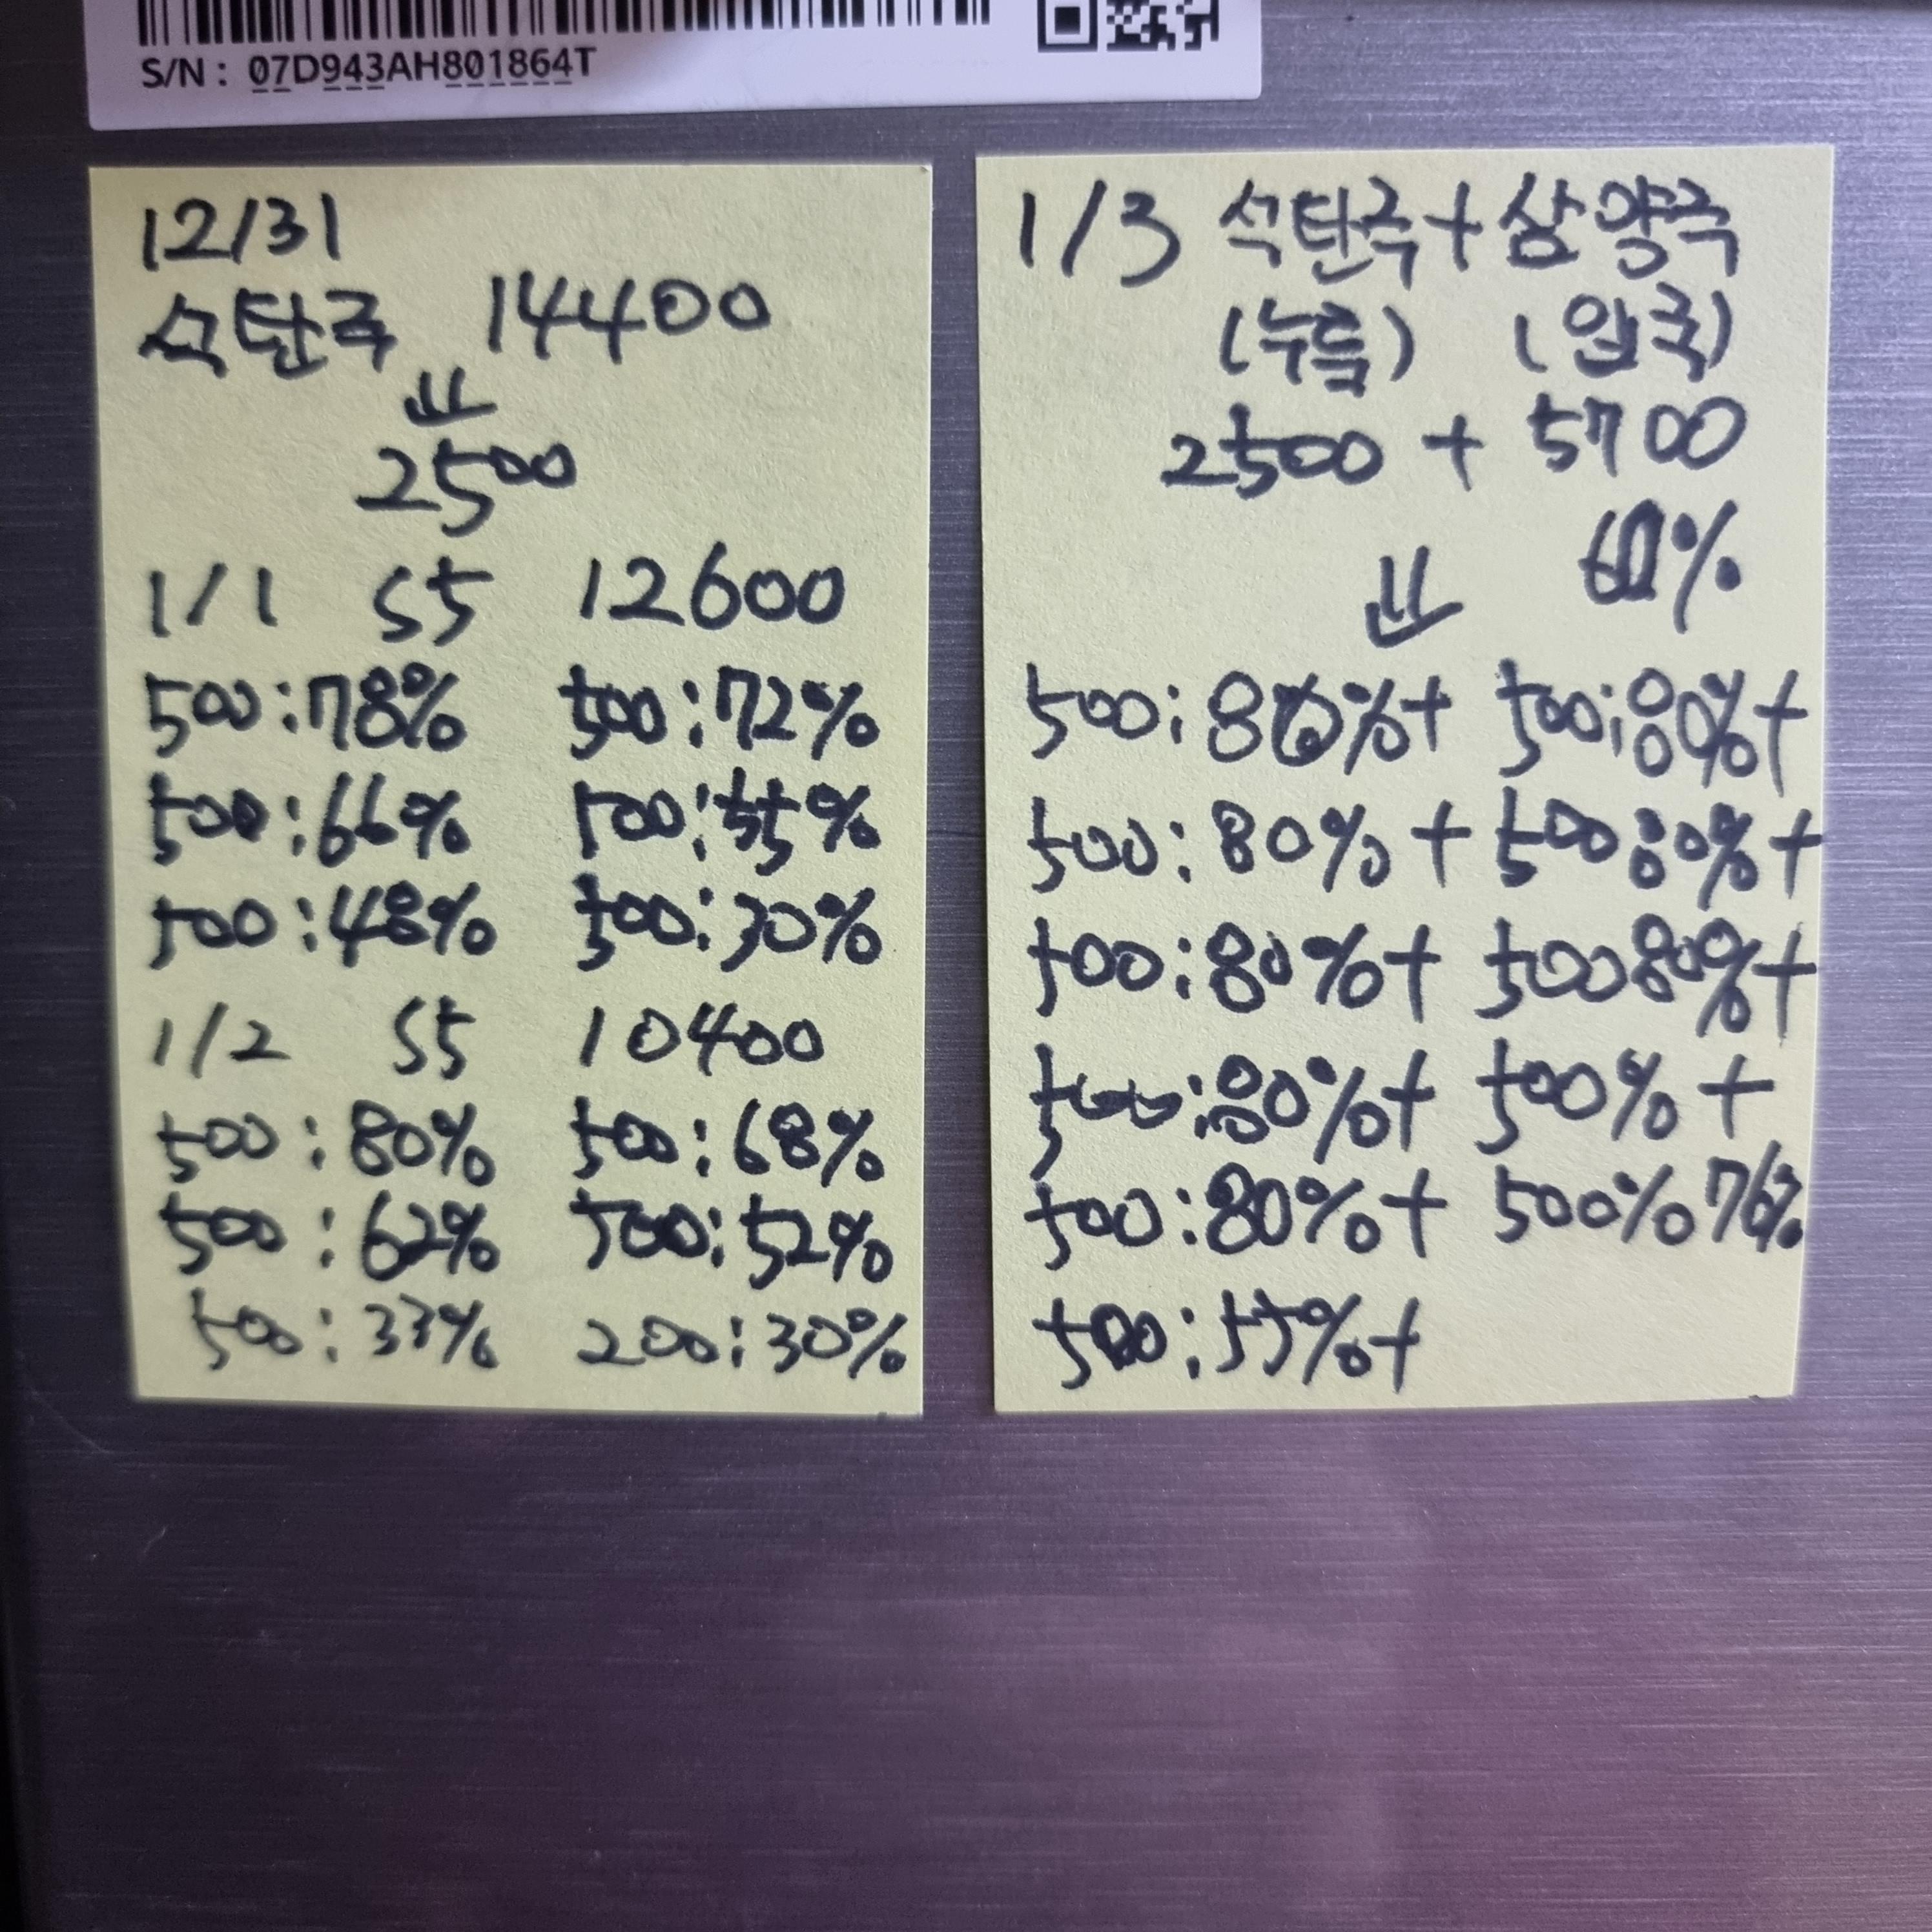 S/N : 07D943AH801864T
12/31
석탄주 14400
⇓
2500
1/1 S5 12600
500:78% 500:72%
500:66% 500:55%
500:48% 500:30%
1/2 S5 10400
500:80% 500:68%
500:62% 500:52%
500:33% 200:30%
1/3 석탄주+삼양주
(누룩) (입국)
2500 + 5700
⇓
500: % + 500:80%+
500:80% + 500:80%+
500:80%+ 500 80%+
500:80%+ 500% +
500:80%+ 500% 76%
500:55%+